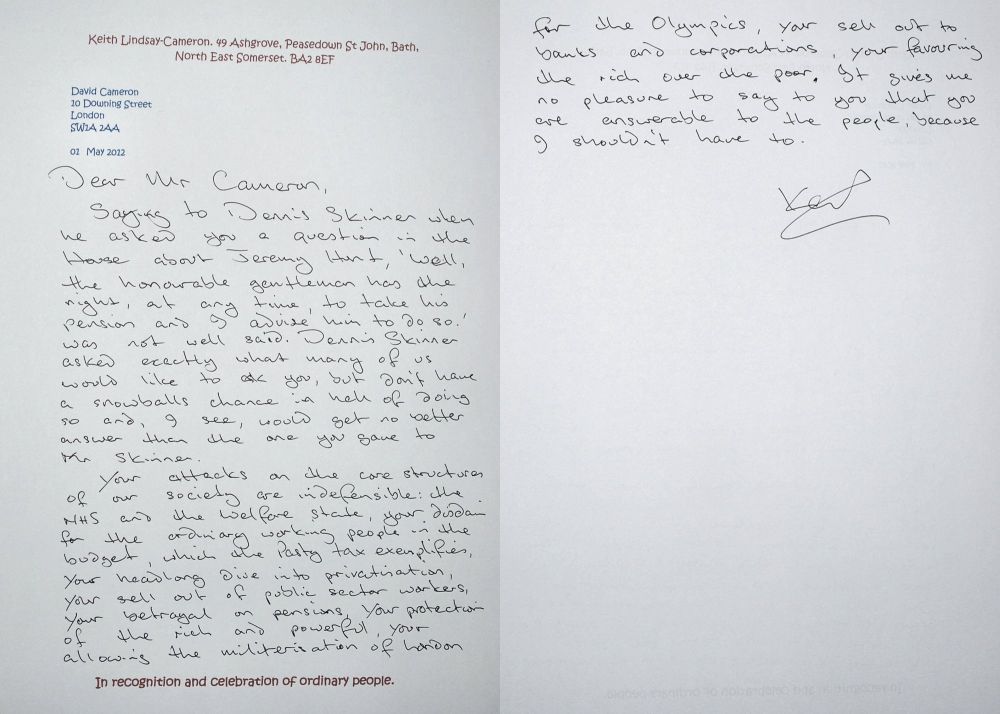 Keith Lindsay-Cameron. 49 Ashgrove, Peasedown St John, Bath,
North East Somerset. BA2 8EF
David Cameron
10 Downing Street
London
SW1A 2AA
01 May 2012
Dear Mr Cameron,
Saying to Dennis Skinner when
he asked you a question in the
House about Jeremy Hunt, 'Well,
the honourable gentleman has the
right, at any time, to take his
pension and I advise him to do so.'
was not well said. Dennis Skinner
asked exactly what many of us
would like to ask you, but don't have
a snowballs chance in hell of doing
so and, I see, would get no better
answer than the one you gave to
Mr Skinner.
Your attacks on the core structures
of our society are indefensible: the
NHS and the Welfare State, your disdain
for the ordinary working people in the
budget, which the Pasty tax exemplifies,
Your headlong dive into privatisation,
your sell out of public sector workers,
Your betrayal on pensions, Your protection
of the rich and powerful, your
allowing the militerisation of London
In recognition and celebration of ordinary people.
for the Olympics, your sell out to
banks and corporations, your favouring
the rich over the poor. It gives me
no pleasure to say to you that you
are answerable to the people, because
I shouldn't have to.